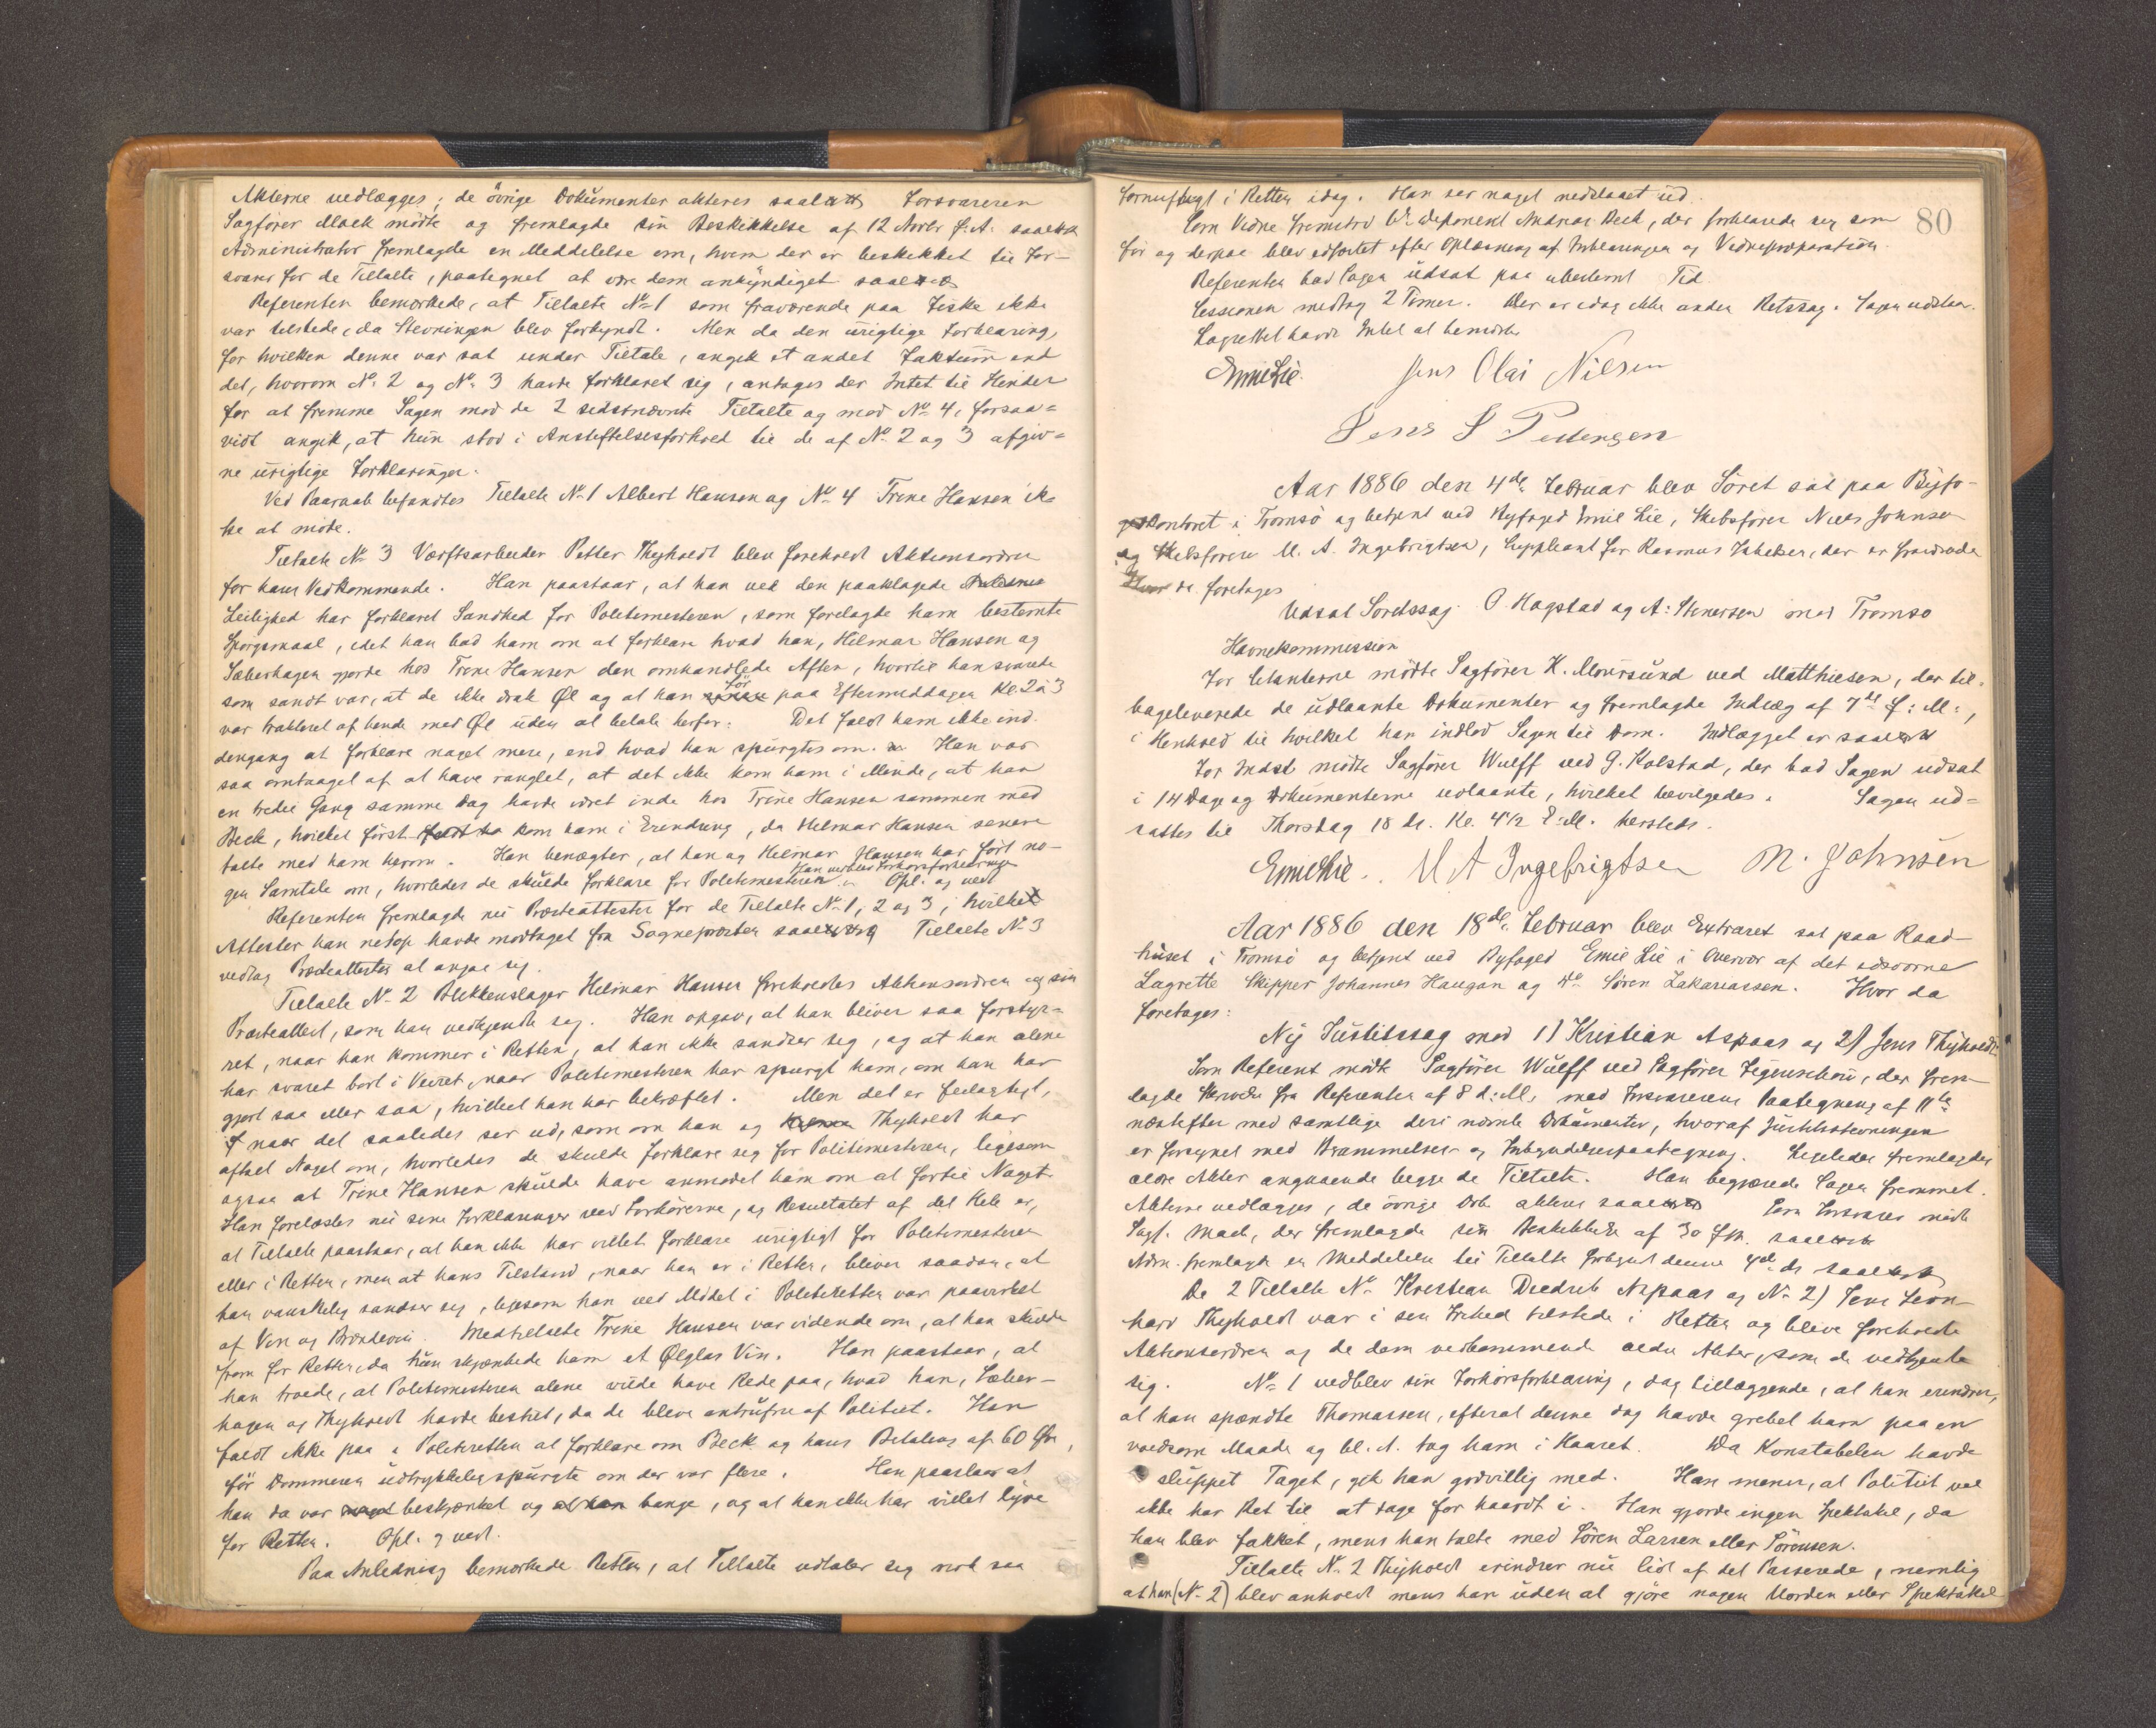 Akterne vedlægges; de övrige Dokumenter akteres saal. Forsvareren
Sagförer Mack mödte og fremlagde sin Beskikkelse af 12 Novbr f. A. saal.
Administrator fremlagde en Meddelelse om, hvem der er beskikket til For-
svarer for de Tiltalte, paategnet at være dem ankyndiget saal.
Referenten bemærkede, at Tiltalte No 1 som fraværende paa Fiske ikke
var tilstede, da Stevningen blev forkyndt. Men da den urigtige Forklaring,
for hvilken denne var sat under Tiltale, angik et andet Faktum end
det, hvorom No. 2 og No. 3 havde forklaret sig, antages der Intet til Hinder
for at fremme Sagen mod de 2 sidstnævnte Tiltalte og mod No 4, forsaa-
vidt angik, at hun stod i Anstiftelsesforhold til de af No. 2 og 3 afgiv-
ne urigtige Forklaringer.
Ved Paaraab befandtes Tiltalte No 1 Albert Hansen og No 4 Trine Hansen ik-
ke at möde.
Tiltalte No 3 Værftsarbeider Petter Thyholdt blev foreholdt Aktionsordren
for hans Vedkommende. Han paastaar, at han ved den paaklagede
Leilighed har forklaret Sandhed for Politimesteren, som forelagde ham bestemte
Spörgsmaal, idet han bad ham om at forklare hvad han, Hilmar Hansen og
Sæberhagen gjorde hos Trine Hansen den omhandlede Aften, hvortil han svarede
som sandt var, at de ikke drak Öl og at han för paa Eftermiddagen Kl. 2 à 3
var trakteret af hende med Öl uden at betale herfor. Det faldt ham ikke ind
dengang at forklare noget mere, end hvad han spurgtes om. Han var
saa omtaaget af at have ranglet, at det ikke kom ham i Minde, at han
en tredie Gang samme Dag havde været inde hos Trine Hansen sammen med
Beck, hvilket först kom ham i Erindring, da Hilmar Hansen senere
talte med ham herom. Han benægter, at han og Hilmar Hansen har fört no-
gen Samtale om, hvorledes de skulde forklare for Politimesteren. Han vedblev Forhörsforklaringen. Opl. og vedt.
Referenten fremlagde nu Præsteattester for de Tiltalte No 1, 2 og 3, hvilke
Attester han netop havde modtaget fra Sognepræsten saal. Tiltalte No 3
vedtog Præsteattesten at angaa sig.
Tiltalte No 2 Blikkenslager Hilmar Hansen foreholdtes Aktionsordren og sin
Præsteattest, som han vedkjendte sig. Han opgav, at han bliver saa forstyr-
ret, naar han kommer i Retten, at han ikke sandser sig, og at han alene
har svaret bort i Veiret, naar Politimesteren har spurgt ham, om han har
gjort saa eller saa, hvilket han har bekræftet. Men det er feilagtigt,
naar det saaledes ser ud, som om han og Thyholdt har
aftalt Noget om, hvorledes de skulde forklare sig for Politimesteren, ligesom
ogsaa at Trine Hansen skulde have anmodet ham om at fortie Noget.
Han forelæstes nu sine Forklaringer ved Forhörerne, og Resultatet af det Hele er,
at Tiltalte paastaar, at han ikke har villet forklare urigtigt for Politimesteren
eller i Retten, men at hans Tilstand, naar han er i Retten, bliver saadan, at
han vanskelig sandser sig, ligesom han ved Mödet i Politiretten var paavirket
af Vin og Brændevin. Medtiltalte Trine Hansen var vidende om, at han skulde
frem for Retten, da hun skjænkede ham et Ölglas Vin. Han paastaar, at
han troede, at Politimesteren alene vilde have Rede paa, hvad han, Sæber-
hagen og Thyholdt havde bestilt, da de bleve antrufne af Politiet. Han
faldt ikke paa i Politiretten at forklare om Beck og hans Betaling af 60 Öre,
för Dommeren udtrykkelig spurgte om der var flere. Han paastaar at
han da var beskjænket og bange, og at han ikke har villet lyve
for Retten. Opl. og vedt.
Paa Anledning bemærkede Retten, at Tiltalte udtaler sig nok saa
80
fornuftigt i Retten idag. Han ser noget nedslaaet ud.
Som Vidne fremstod Andreas Beck, der forklarede sig som
för og derpaa blev edfæstet efter Oplæsning af Forklaringen og Vidnepræparation.
Referenten bad Sagen udsat paa ubestemt Tid.
Sessionen medtog 2 Timer. Der er idag ikke anden Retssag. Sagen udstaar.
Lagrettet havde Intet at bemærke
Emil Lie. Jens Olai Nilsen
Jens S Pedersen
Aar 1886 den 4de Februar blev Söret sat paa Byfo-
gedkontoret i Tromsö og betjent ved Byfoged Emil Lie, Skibsförer Niels Johnsen
og Skibsförer M. A. Ingebrigtsen, Suppleant for Rasmus Jakobsen, der er fraværende
Hvor da foretages
Udsat Söretssag O. Hagstad og A. Stenersen mod Tromsö
Havnekommission
For Citanterne mödte Sagförer H. Moursund ved Matthiesen, der til-
bageleverede de udlaante Dokumenter og fremlagde Indlæg af 7de f. M.,
i Henhold til hvilket han indlod Sagen til Dom. Indlægget er saal.
For Indst mödte Sagförer Wulff ved G. Kolstad, der bad Sagen udsat
i 14 Dage og Dokumenterne udlaante, hvilket bevilgedes. Sagen ud-
sattes til Thorsdag 18 ds. Kl. 4 1/2 E.M. hersteds.
Emil Lie. M A Ingebrigtsen N. Johnsen
Aar 1886 den 18de Februar blev Extraret sat paa Raad-
huset i Tromsö og betjent ved Byfoged Emil Lie i Overvær af det edsvorne
Lagrette Skipper Johannes Haugan og do Sören Zakariassen. Hvor da
foretages:
Ny Justitssag mod 1) Kristian Aspaas og 2) Jens Thyholdt
Som Referent mödte Sagförer Wulff ved Sagförer Jügenschou, der frem-
lagde Skrivelse fra Referenten af 8 d. M. med Forsvarerens Paategning af 11te
næstefter med samtlige deri nævnte Dokumenter, hvoraf Justitsstevningen
er forsynet med Berammelses- og Forkyndelsespaategning. Ligeledes fremlagdes
ældre Akter angaaende begge de Tiltalte. Han begjærede Sagen fremmet.
Akterne vedlægges, de övrige Dok. akteres saal. Som Forsvarer mödte
Sagf. Mack, der fremlagde sin Beskikkelse af 30 f. M. saal.
Adm. fremlagde en Meddelelse til Tiltalte forkyndt denne 4de ds saal.
De 2 Tiltalte No 1 Kristian Diedrik Aspaas og No 2) Jens Leon-
hard Thyholdt var i sin Frihed tilstede i Retten og bleve foreholdte
Aktionsordren og de dem vedkommende ældre Akter, som de vedkjendte
sig. No 1 vedblev sin Forhörsforklaring, dog tillæggende, at han erindrer,
at han spændte Thomassen, efterat denne dog havde grebet ham paa en
voldsom Maade og bl. A. tog ham i Haaret. Da Konstabelen havde
sluppet Taget, gik han godvillig med. Han mener, at Politiet vel
ikke har Ret til at tage for haardt i. Han gjorde ingen Spektakel, da
han blev fakket, mens han talte med Sören Larsen eller Sörensen.
Tiltalte No 2 Thyholdt erindrer nu lidt af det Passerede, nemlig
at han (No 2) blev anholdt mens han uden at gjöre nogen Uorden eller Spektakel